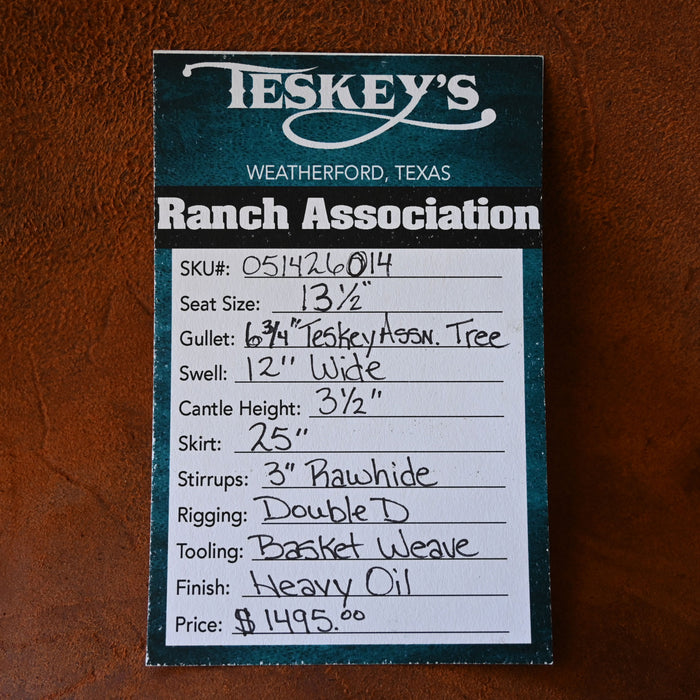 TESKEY'S
WEATHERFORD, TEXAS
Ranch Association
SKU#: 051426014
Seat Size: 13 1/2"
Gullet: 6 3/4" Teskey Assn. Tree
Swell: 12" Wide
Cantle Height: 3 1/2"
Skirt: 25"
Stirrups: 3" Rawhide
Rigging: Double D
Tooling: Basket Weave
Finish: Heavy Oil
Price: $1495.00